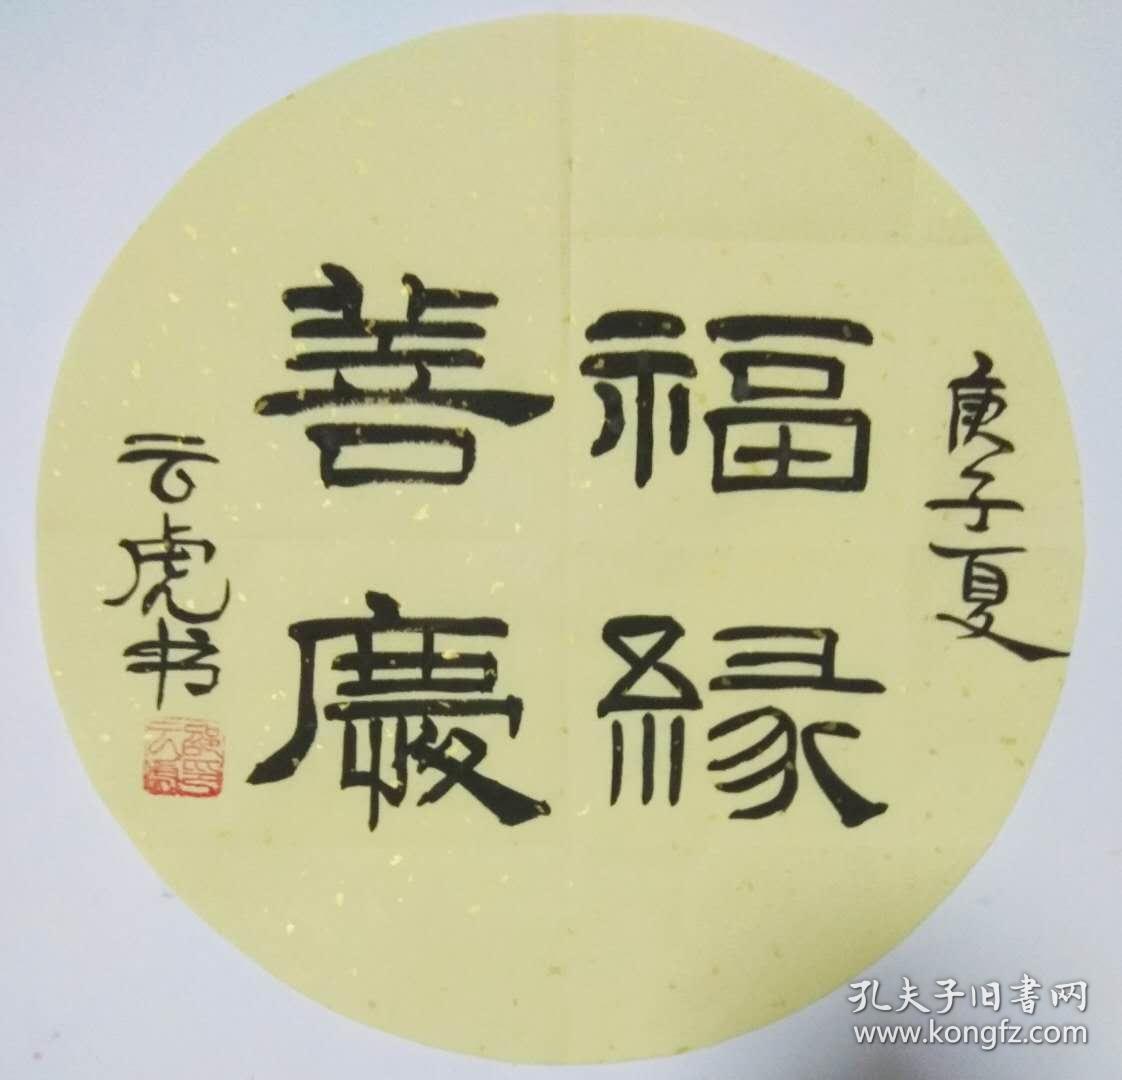 庚子夏
福緣
善慶
云虎书
孔夫子旧书网
www.kongfz.com